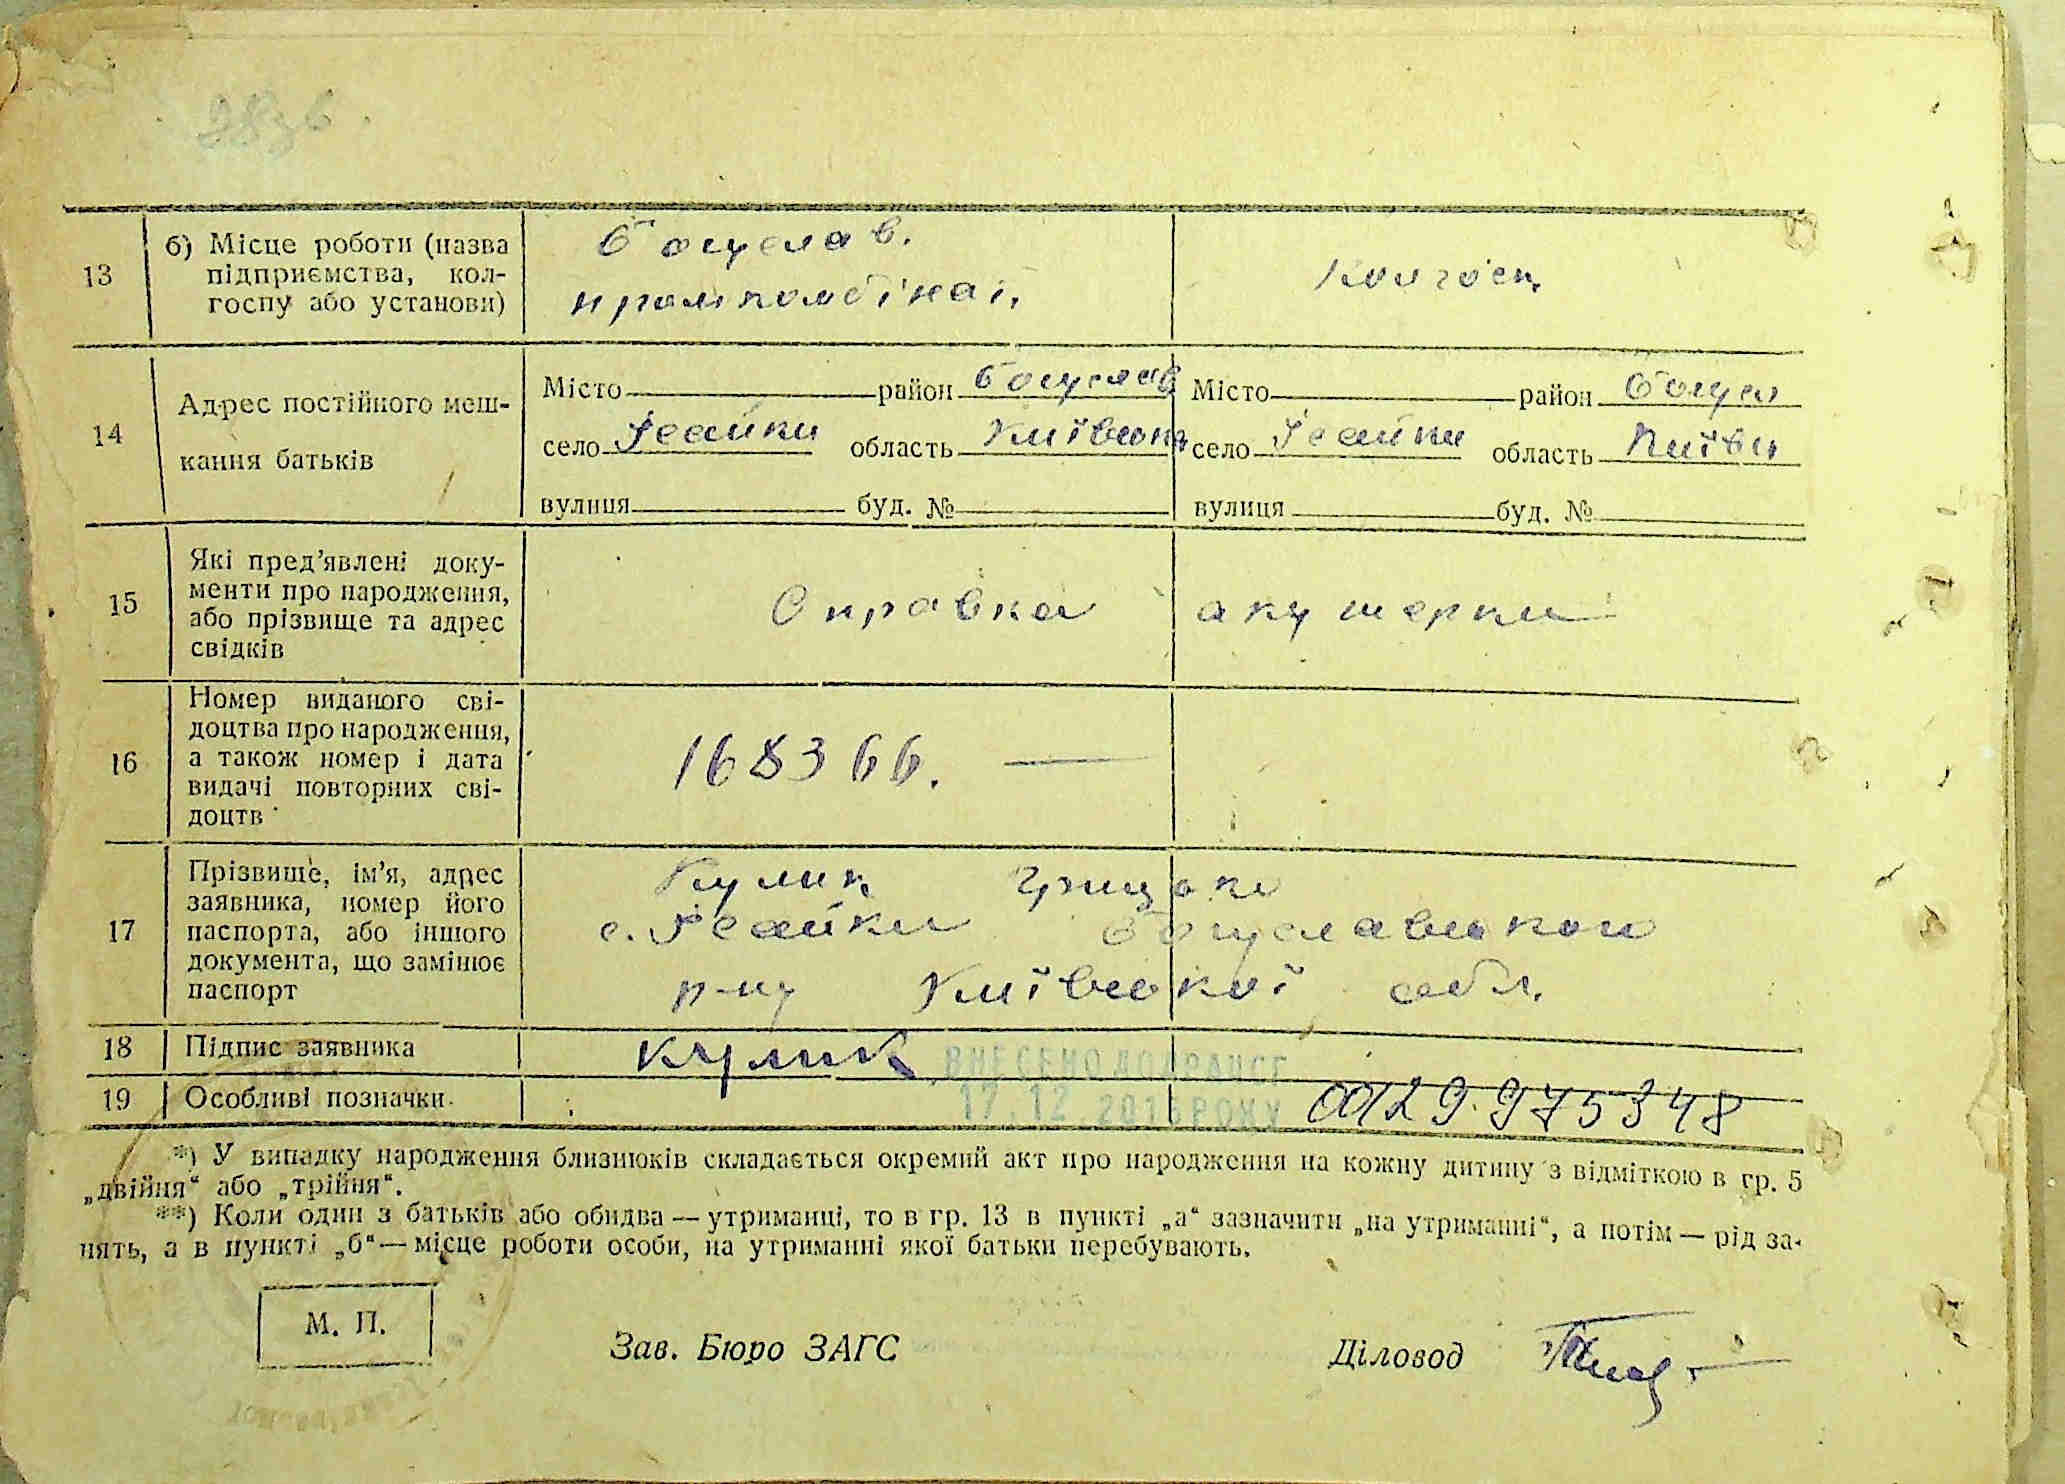 13 б) Місце роботи (назва підприємства, колгоспу або установи)
Богуслав.
промкомбінат,
колгосп,
14 Адрес постійного мешкання батьків
Місто район Богуслав Місто район Богусл
село Ісайки область Київськ село Ісайки область Київсь
вулиця буд. № вулиця буд. №
15 Які пред'явлені документи про народження, або прізвище та адрес свідків
Справка акушерки
16 Номер виданого свідоцтва про народження, а також номер і дата видачі повторних свідоцтв
168366. —
17 Прізвище, ім'я, адрес заявника, номер його паспорта, або іншого документа, що замінює паспорт
Кулик Грицько
с. Ісайки Богуславського
р-ну Київської обл.
18 Підпис заявника
Кулик
ВНЕСЕНО ДО ДРАЦСГ
19 Особливі позначки
17.12.2015 РОКУ
00129975348
*) У випадку народження близнюків складається окремий акт про народження на кожну дитину з відміткою в гр. 5
„двійня“ або „трійня“.
**) Коли один з батьків або обидва — утриманці, то в гр. 13 в пункті „а“ зазначити „на утриманні“, а потім — рід за-
нять, а в пункті „б“ — місце роботи особи, на утриманні якої батьки перебувають.
М. П.
Зав. Бюро ЗАГС
Діловод